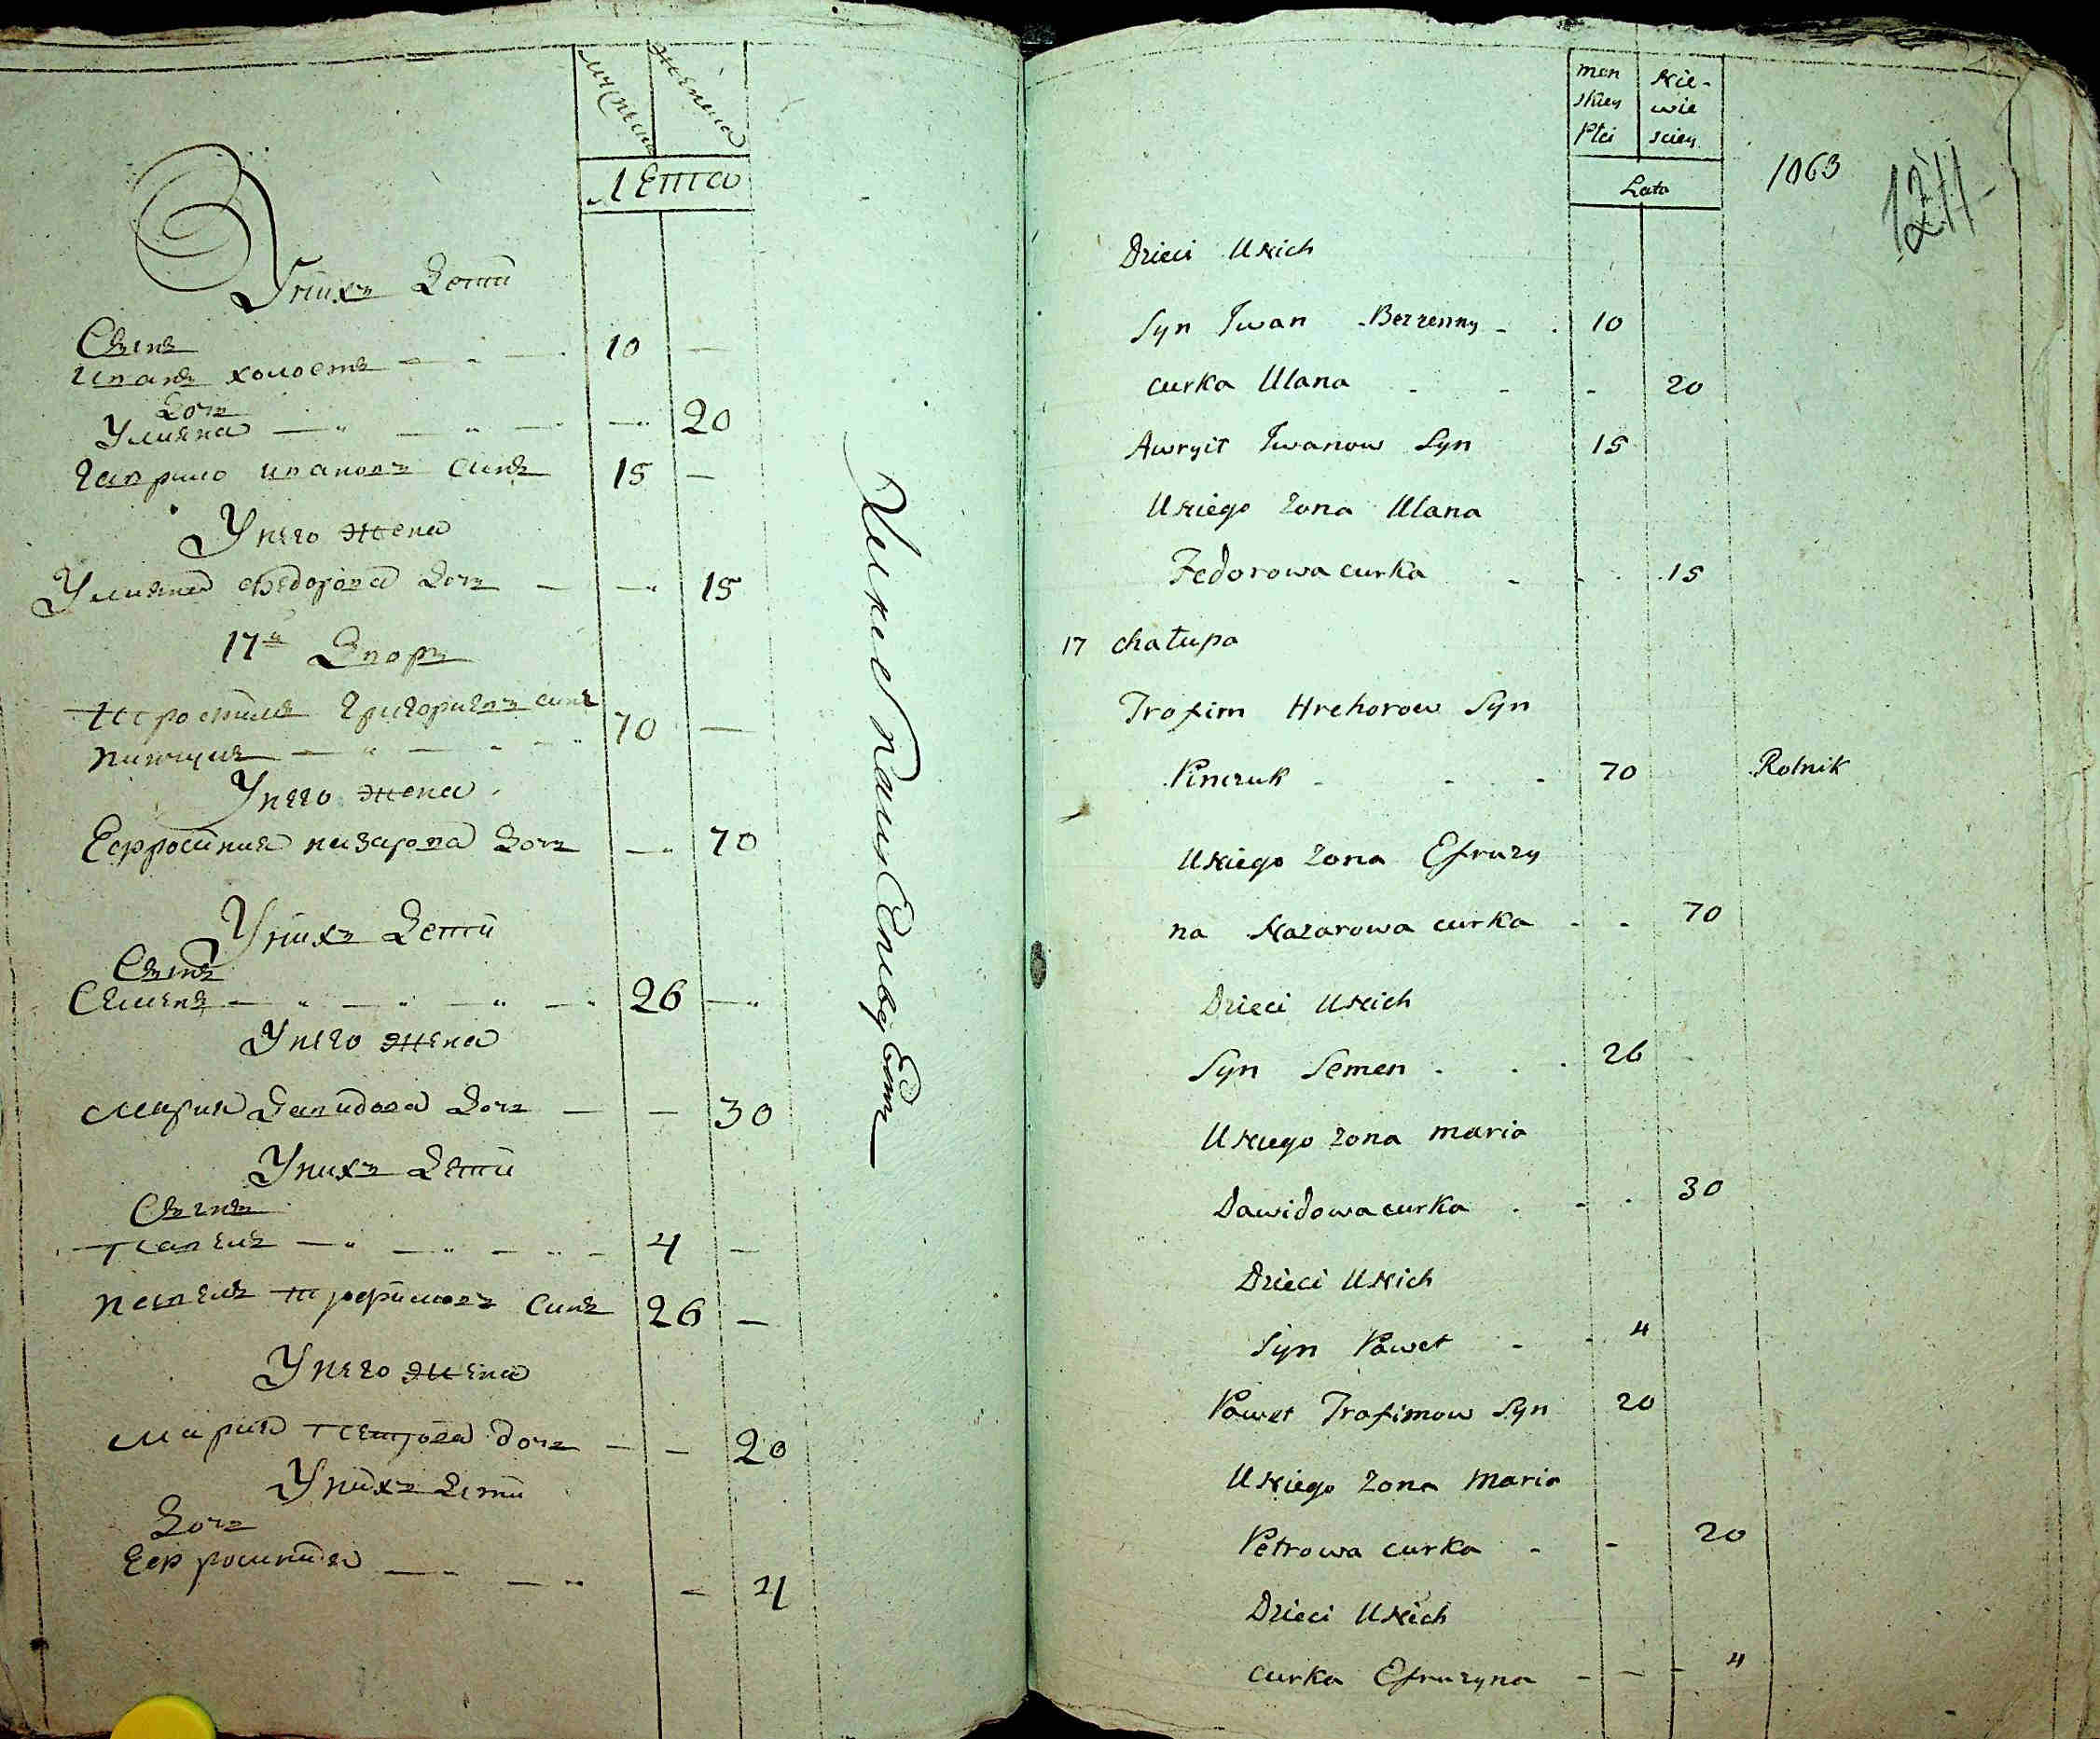 мужеска
женска
Лѣта
У нихъ Дѣти
Сынъ
Иванъ холостъ — „ — 10 —
Дочь
Улияна — „ — „ — — „ 20
Гаврило ивановъ синъ 15 —
У него жена
Улияна Федорова Дочь — — „ 15
17й Дворъ
Трофимъ Григориевъ синъ
пинчукъ — „ — „ 70 —
У него жена
Ефросиния назарова Дочь — „ 70
У нихъ Дѣти
Сынъ
Семенъ — „ — „ — „ — „ 26 — „
У него жена
Мария Давидова Дочь — — 30
У нихъ Дѣти
Сынъ
Павелъ — „ — „ — „ — 4 —
Павелъ трофимовъ Синъ 26 —
У него жена
Мария Петрова дочь — — 20
У нихъ Дѣти
Дочь
Ефросиния — „ — „ — 4
men
skiey
Płci
Nie-
wie
sciey
Lata
1063
1211
Dzieci U nich
Syn Iwan Bezzenny - . 10
curka Ulana - - - 20
Awryił Iwanow Syn 15
U niego zona Ulana
Fedorowa curka - . . 15
17 chałupa
Trofim Hrehorow Syn
Pinczuk - - - 70 Rolnik
U niego zona Efruzy
na Nazarowa curka - - 70
Dzieci U nich
Syn Semen . . . 26
U niego zona maria
Dawidowa curka . - . 30
Dzieci U nich
Syn Paweł - - 4
Paweł Trofimow Syn 20
U niego zona Maria
Petrowa curka - - 20
Dzieci U nich
curka Efruzyna - - - 4